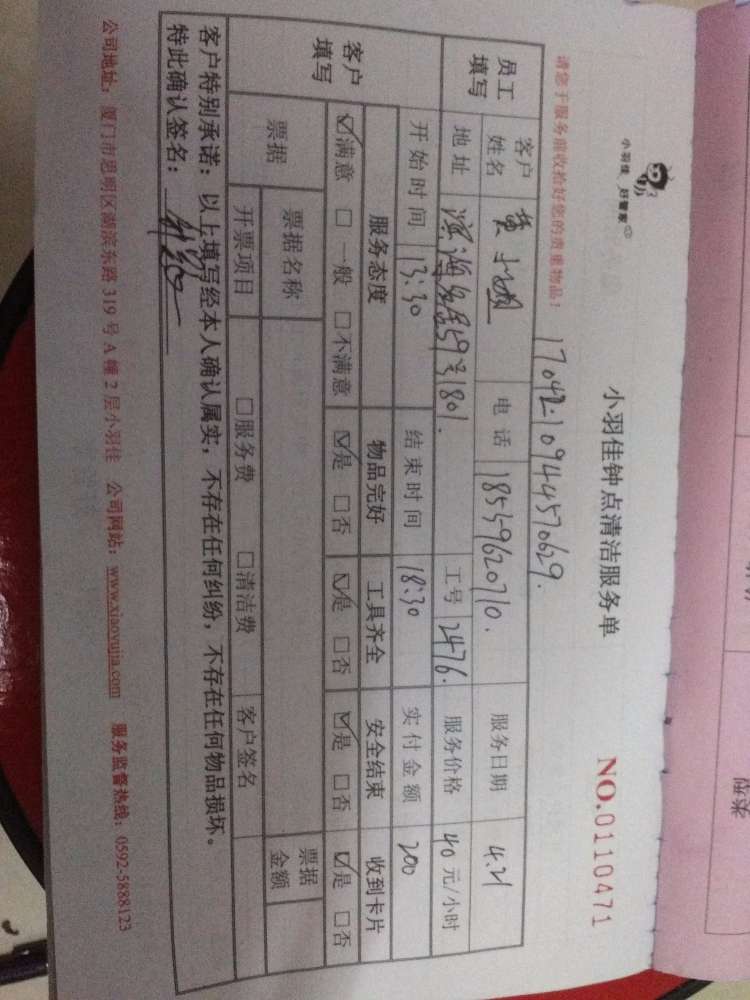 小羽佳 好管家
小羽佳钟点清洁服务单
NO.0110471
请您于服务前收拾好您的贵重物品！
1704210944570629.
员工填写
客户姓名 黄 电话 18559620710. 服务日期 4.21
地址 滨海名居59号1801. 工号 2476. 服务价格 40 元/小时
开始时间 13:30 结束时间 18:30 实付金额 200
客户填写
服务态度 物品完好 工具齐全 安全结束 收到卡片
☑满意 □一般 □不满意 ☑是 □否 ☑是 □否 ☑是 □否 ☑是 □否
票据
票据名称
票据金额
开票项目 □服务费 □清洁费 客户签名
客户特别承诺：以上填写经本人确认属实，不存在任何纠纷，不存在任何物品损坏。
特此确认签名：
公司地址：厦门市思明区湖滨东路 319 号 A 幢 2 层小羽佳 公司网站：www.xiaoyujia.com 服务监督热线：0592-5888123